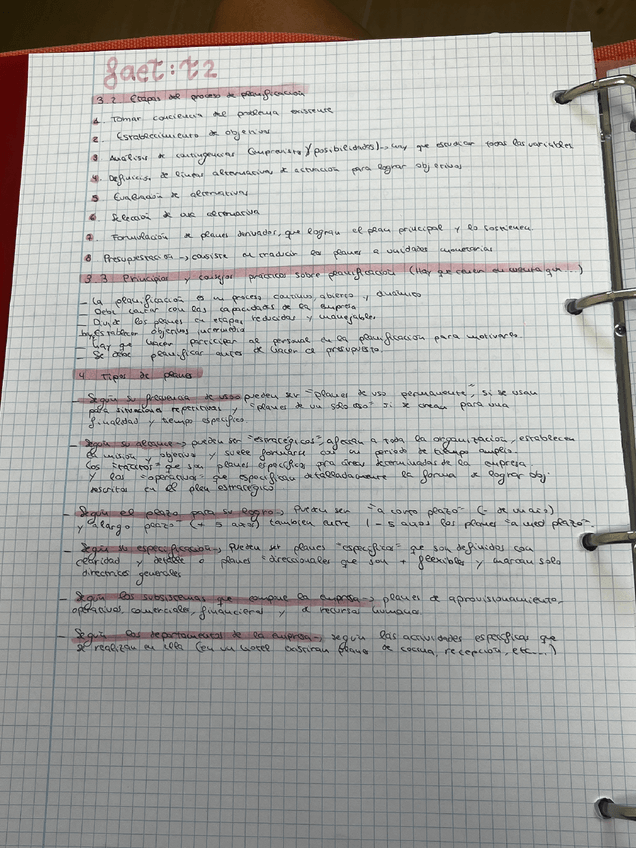 gaet: t2
3.2 Etapas del proceso de planificación
1. Tomar conciencia del problema existente
2. Establecimiento de objetivos
3 Análisis de contingencias (imprevistos y posibilidades) → hay que estudiar todas las variables
4. Definición de líneas alternativas de actuación para lograr objetivos
5 Evaluación de alternativas
6 Selección de una alternativa
7. Formulación de planes derivados, que logran el plan principal y lo sostienen.
8 Presupuestación → consiste en traducir los planes a unidades monetarias
3.3 Principios y consejos prácticos sobre planificación (Hay que tener en cuenta que...)
- La planificación es un proceso continuo, abierto y dinámico
- Debe contar con las capacidades de la empresa
- Divide los planes en etapas reducidas y manejables
by Establecer objetivos
- Hay que hacer participar al personal en la planificación para motivarlo.
- Se debe planificar antes de hacer el presupuesto.
4 Tipos de planes
- Según su frecuencia de uso pueden ser "planes de uso permanente", si se usan
para situaciones repetitivas y "planes de un solo uso" si se crean para una
finalidad y tiempo específico.
- Según su alcance → pueden ser "estratégicos", afectan a toda la organización, establecen
la misión y objetivo y suele formarse con un periodo de tiempo amplio.
Los que son planes específicos para áreas determinadas de la empresa
y los "operativos" que especifican detalladamente la forma de lograr obj.
escritos en el plan estratégico
- Según el plazo para su logro → Pueden ser "a corto plazo" (- de un año)
y "a largo plazo" (+ 5 años) también entre 1 - 5 años los planes "a med plazo".
- Según su especificación → Pueden ser planes "específicos" que son definidos con
claridad y detalle o planes "direccionales que son + flexibles y marcan solo
directrices generales
- Según los subsistemas que compone la empresa → planes de aprovisionamiento,
operativos, comerciales, financieros y de recursos humanos.
- Según los departamentos de la empresa → según las actividades específicas que
se realizan en ella (en un hotel existirán planes de cocina, recepción, etc...)